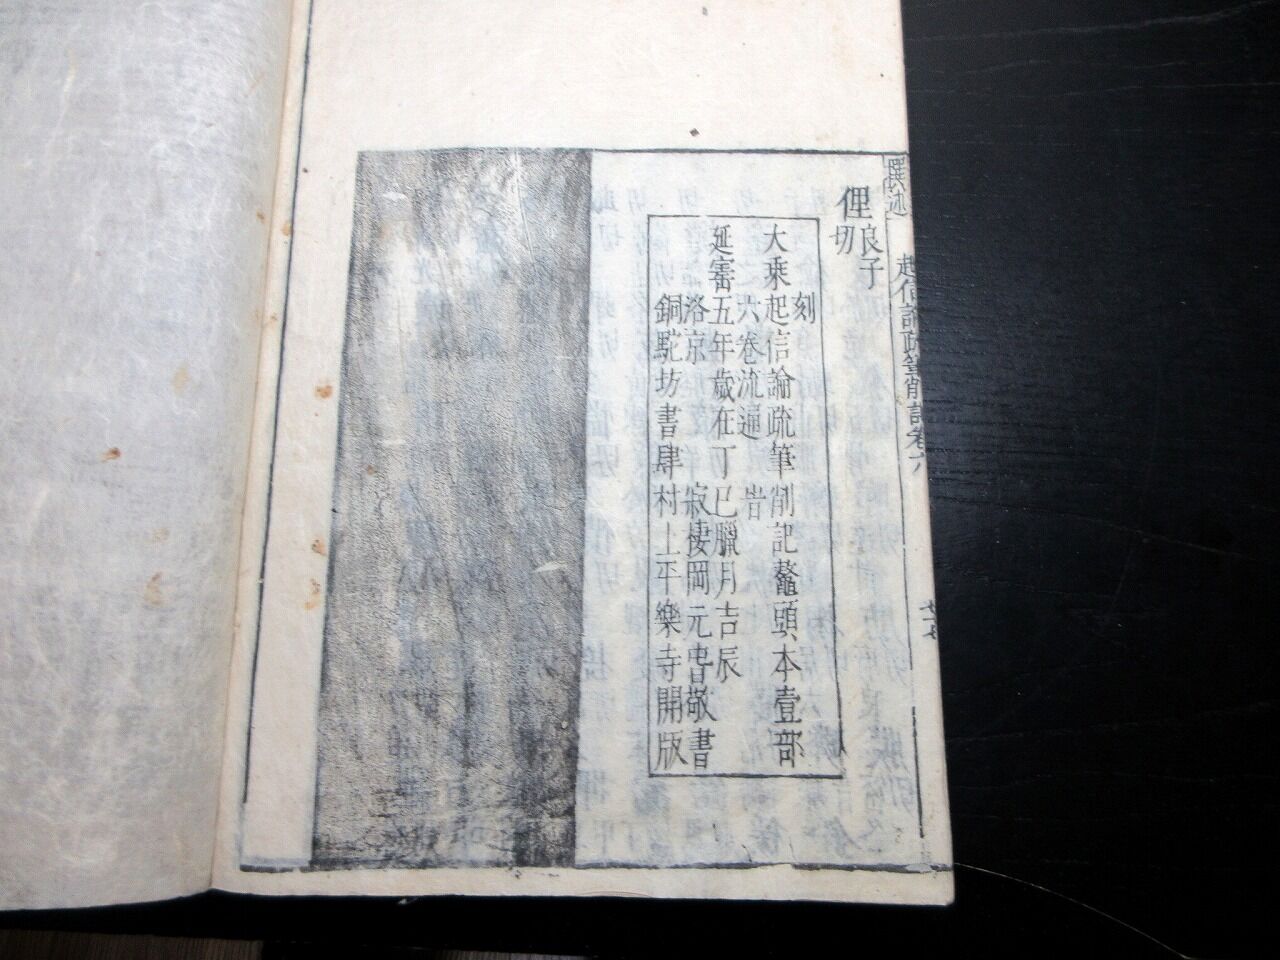 撰述
起信論疏筆削記卷六
俚良子切
刻
大乘起信論疏筆削記鼇頭本壹部
六卷流通 告
延寳五年歲在丁巳臘月吉辰
洛京 寂棲岡元春敬書
銅駝坊書肆村上平樂寺開版